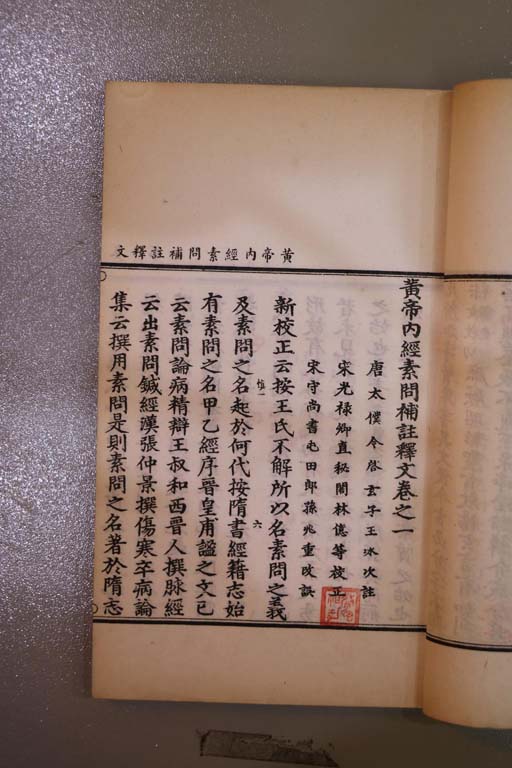 黃帝內經素問補註釋文
黃帝內經素問補註釋文卷之一
唐太僕令啓玄子王冰次註
宋光祿卿直秘閣林億等校正
宋守尚書屯田郎孫兆重改誤
新校正云按王氏不解所以名素問之義
及素問之名起於何代按隋書經籍志始
有素問之名甲乙經序晉皇甫謐之文已
云素問論病精辯王叔和西晉人撰脉經
云出素問鍼經漢張仲景撰傷寒卒病論
集云撰用素問是則素問之名著於隋志
惟一
六